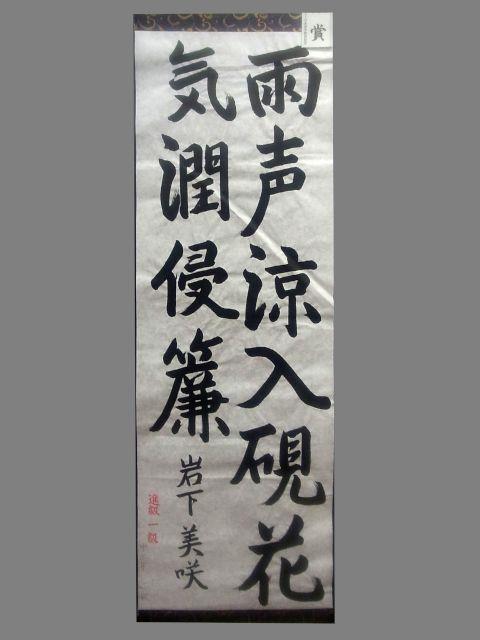 賞
雨声涼入硯花
気潤侵簾
岩下美咲
進級一級